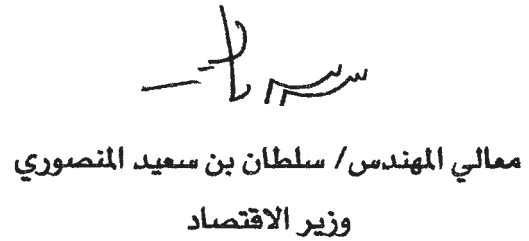 معالي المهندس/ سلطان بن سعيد المنصوري
وزير الاقتصاد